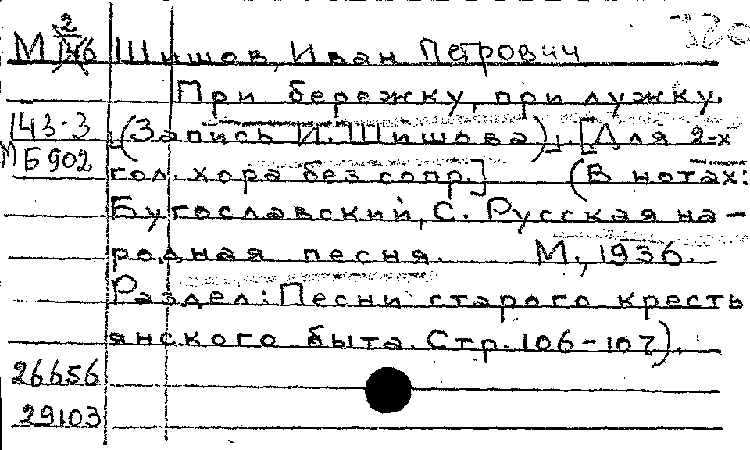 320
М 2/146 Шишов, Иван Петрович
При бережку, при лужку.
143-3 (Запись И. Шишова). [Для 2-х
МБ902 гол. хора без сопр.] (В нотах:
Бугославский, С. Русская на-
родная песня. М., 1936.
Раздел: Песни старого кресть
янского быта. Стр. 106-107).
26656
29103